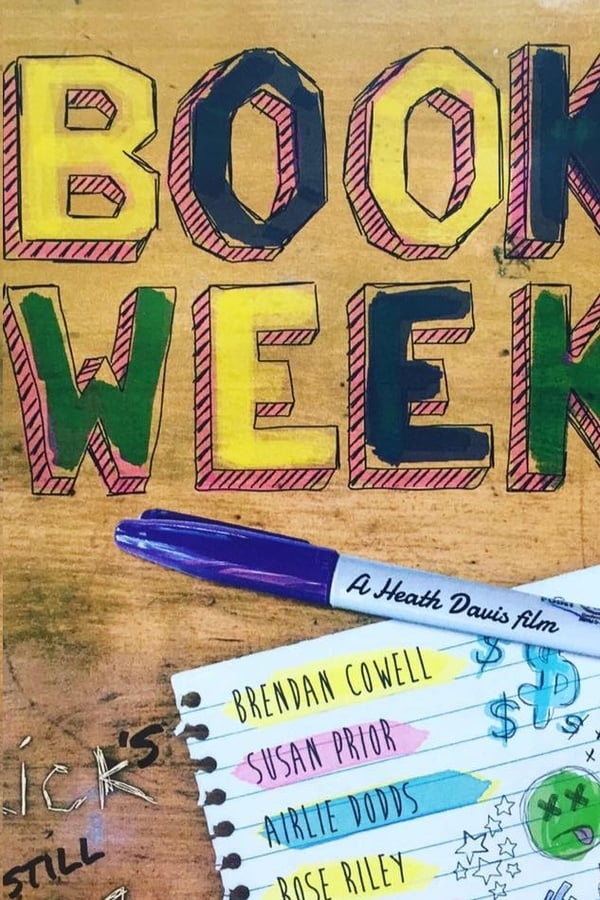 BOOK
WEEK
A Heath Davis film
BRENDAN COWELL
SUSAN PRIOR
AIRLIE DODDS
ROSE RILEY
ick's
STILL